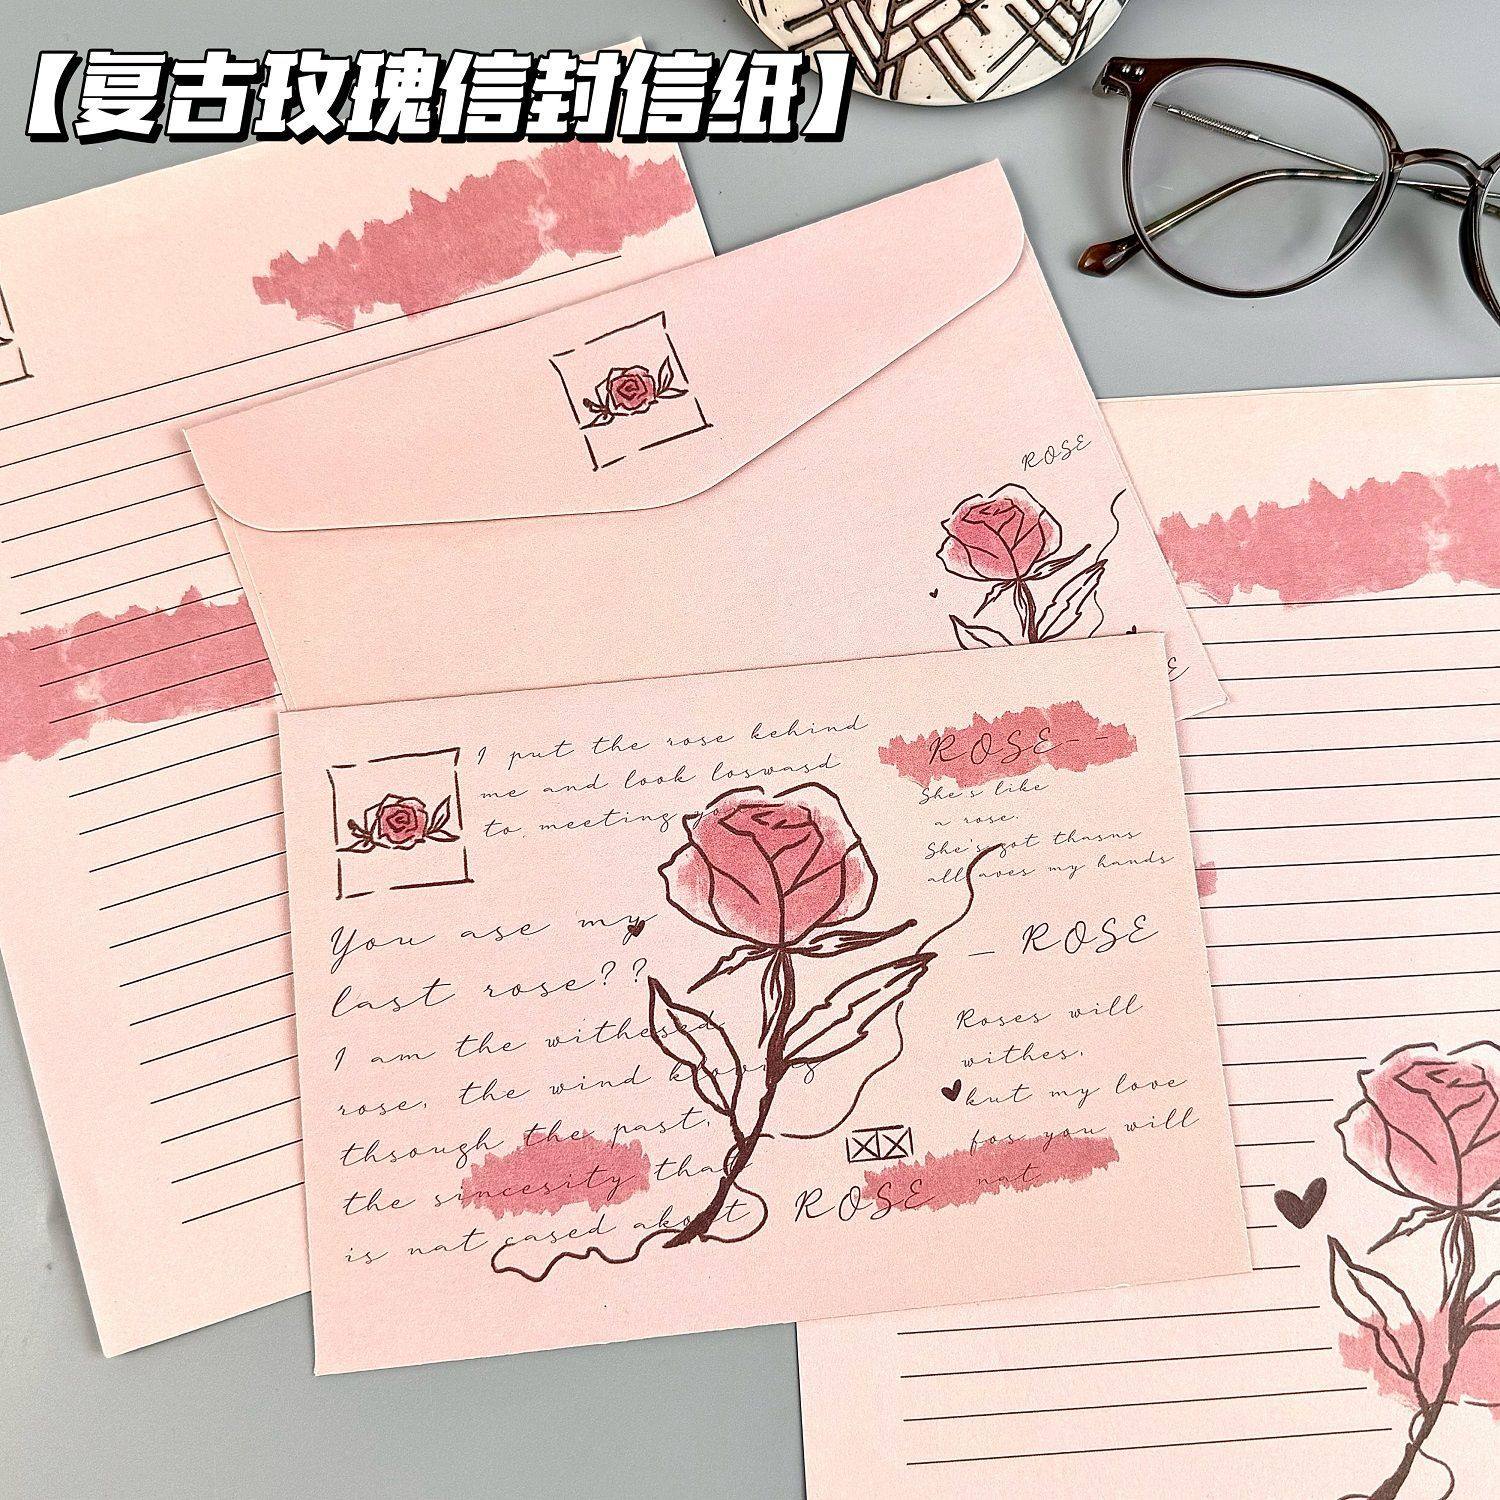 【复古玫瑰信封信纸】
ROSE
I put the rose kehind
me and look loswasd
to meeting yo
You ase my
last rose??
I am the withesed
rose, the wind knowing
thsough the past,
the sincesity that
is nat cased akout
ROSE--
She's like
a rose.
She's got thasns
all aves my hands
— ROSE
Roses will
withes,
kut my love
fos you will
nat
ROSE